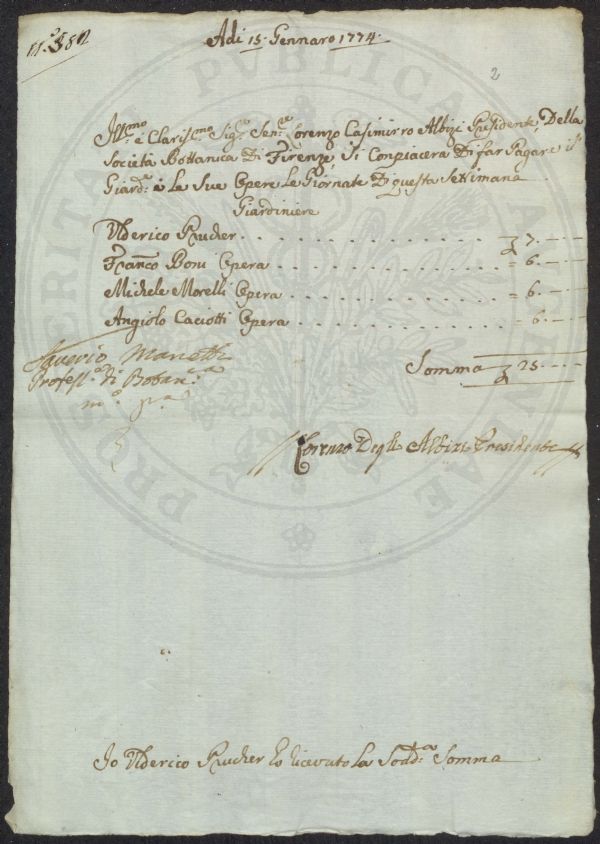 Adi 15 Gennaro 1774
2
Ill.mo e Claris.mo Sig.e Sen.e Lorenzo Casimirro Albizi Presidente, Della
Società Bottanica Di Firenze, Si Conpiacerà Di far Pagare il
Giard.e e Le Sue Opere Le Giornate Di questa Settimana
Giardiniere
Ulderico Prucher 7.
Franco Boni Opera = 6.
Michele Morelli Opera = 6.
Angiolo Caciotti Opera = 6.
Saverio Manetti
Somma 25
Profess.e di Botan.ca
m.o p.a
Lorenzo Degli Albizi Presidente
Io Ulderico Prucher ho ricevuto La Sodd.a Somma
PROSPERITATI PUBLICAE